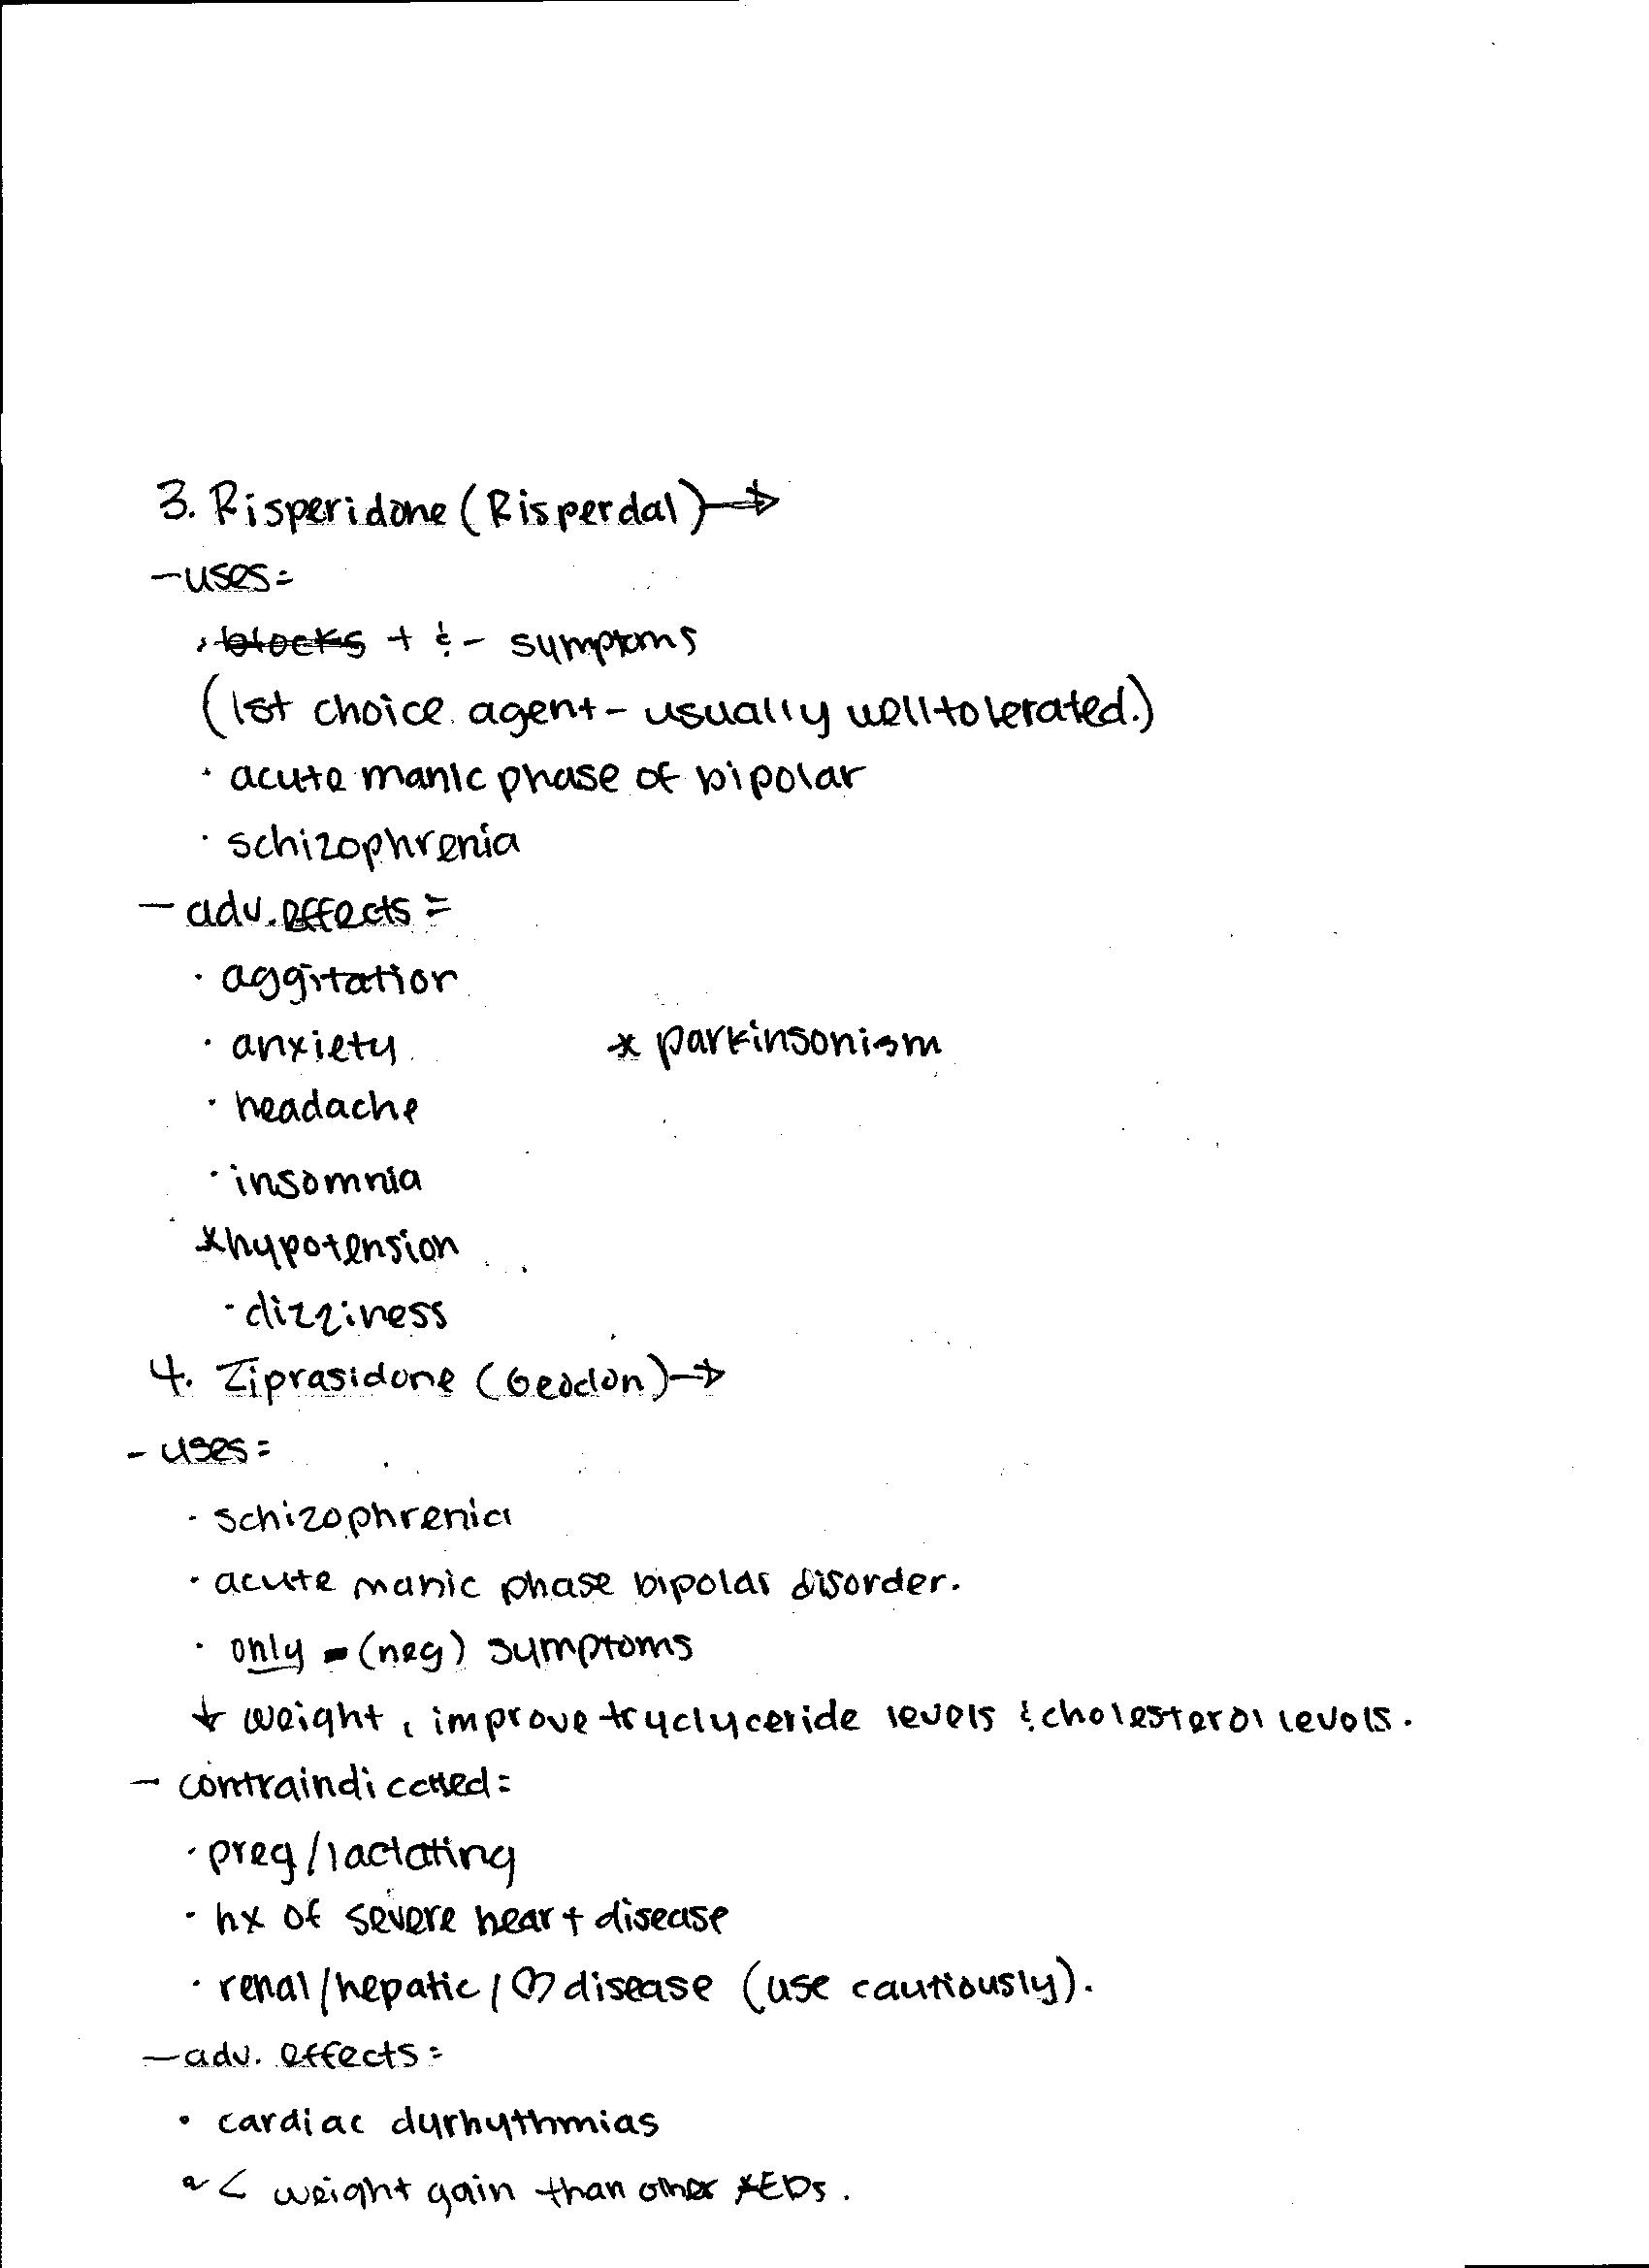 3. Risperidone (Risperdal) →
- uses =
· blocks + & - symptoms
(1st choice agent - usually well tolerated.)
· acute manic phase of bipolar
· schizophrenia
- adv. effects =
· aggitation
· anxiety * parkinsonism
· headache
· insomnia
* hypotension
· dizziness
4. Ziprasidone (Geodon) →
- uses =
· schizophrenia
· acute manic phase bipolar disorder.
· only - (neg) symptoms
↓ weight, improve tryclyceride levels & cholesterol levels.
- contraindicated =
· preg/lactating
· hx of severe heart disease
· renal/hepatic/♡ disease (use cautiously).
- adv. effects =
· cardiac dyrhythmias
· < weight gain than other AEDs.